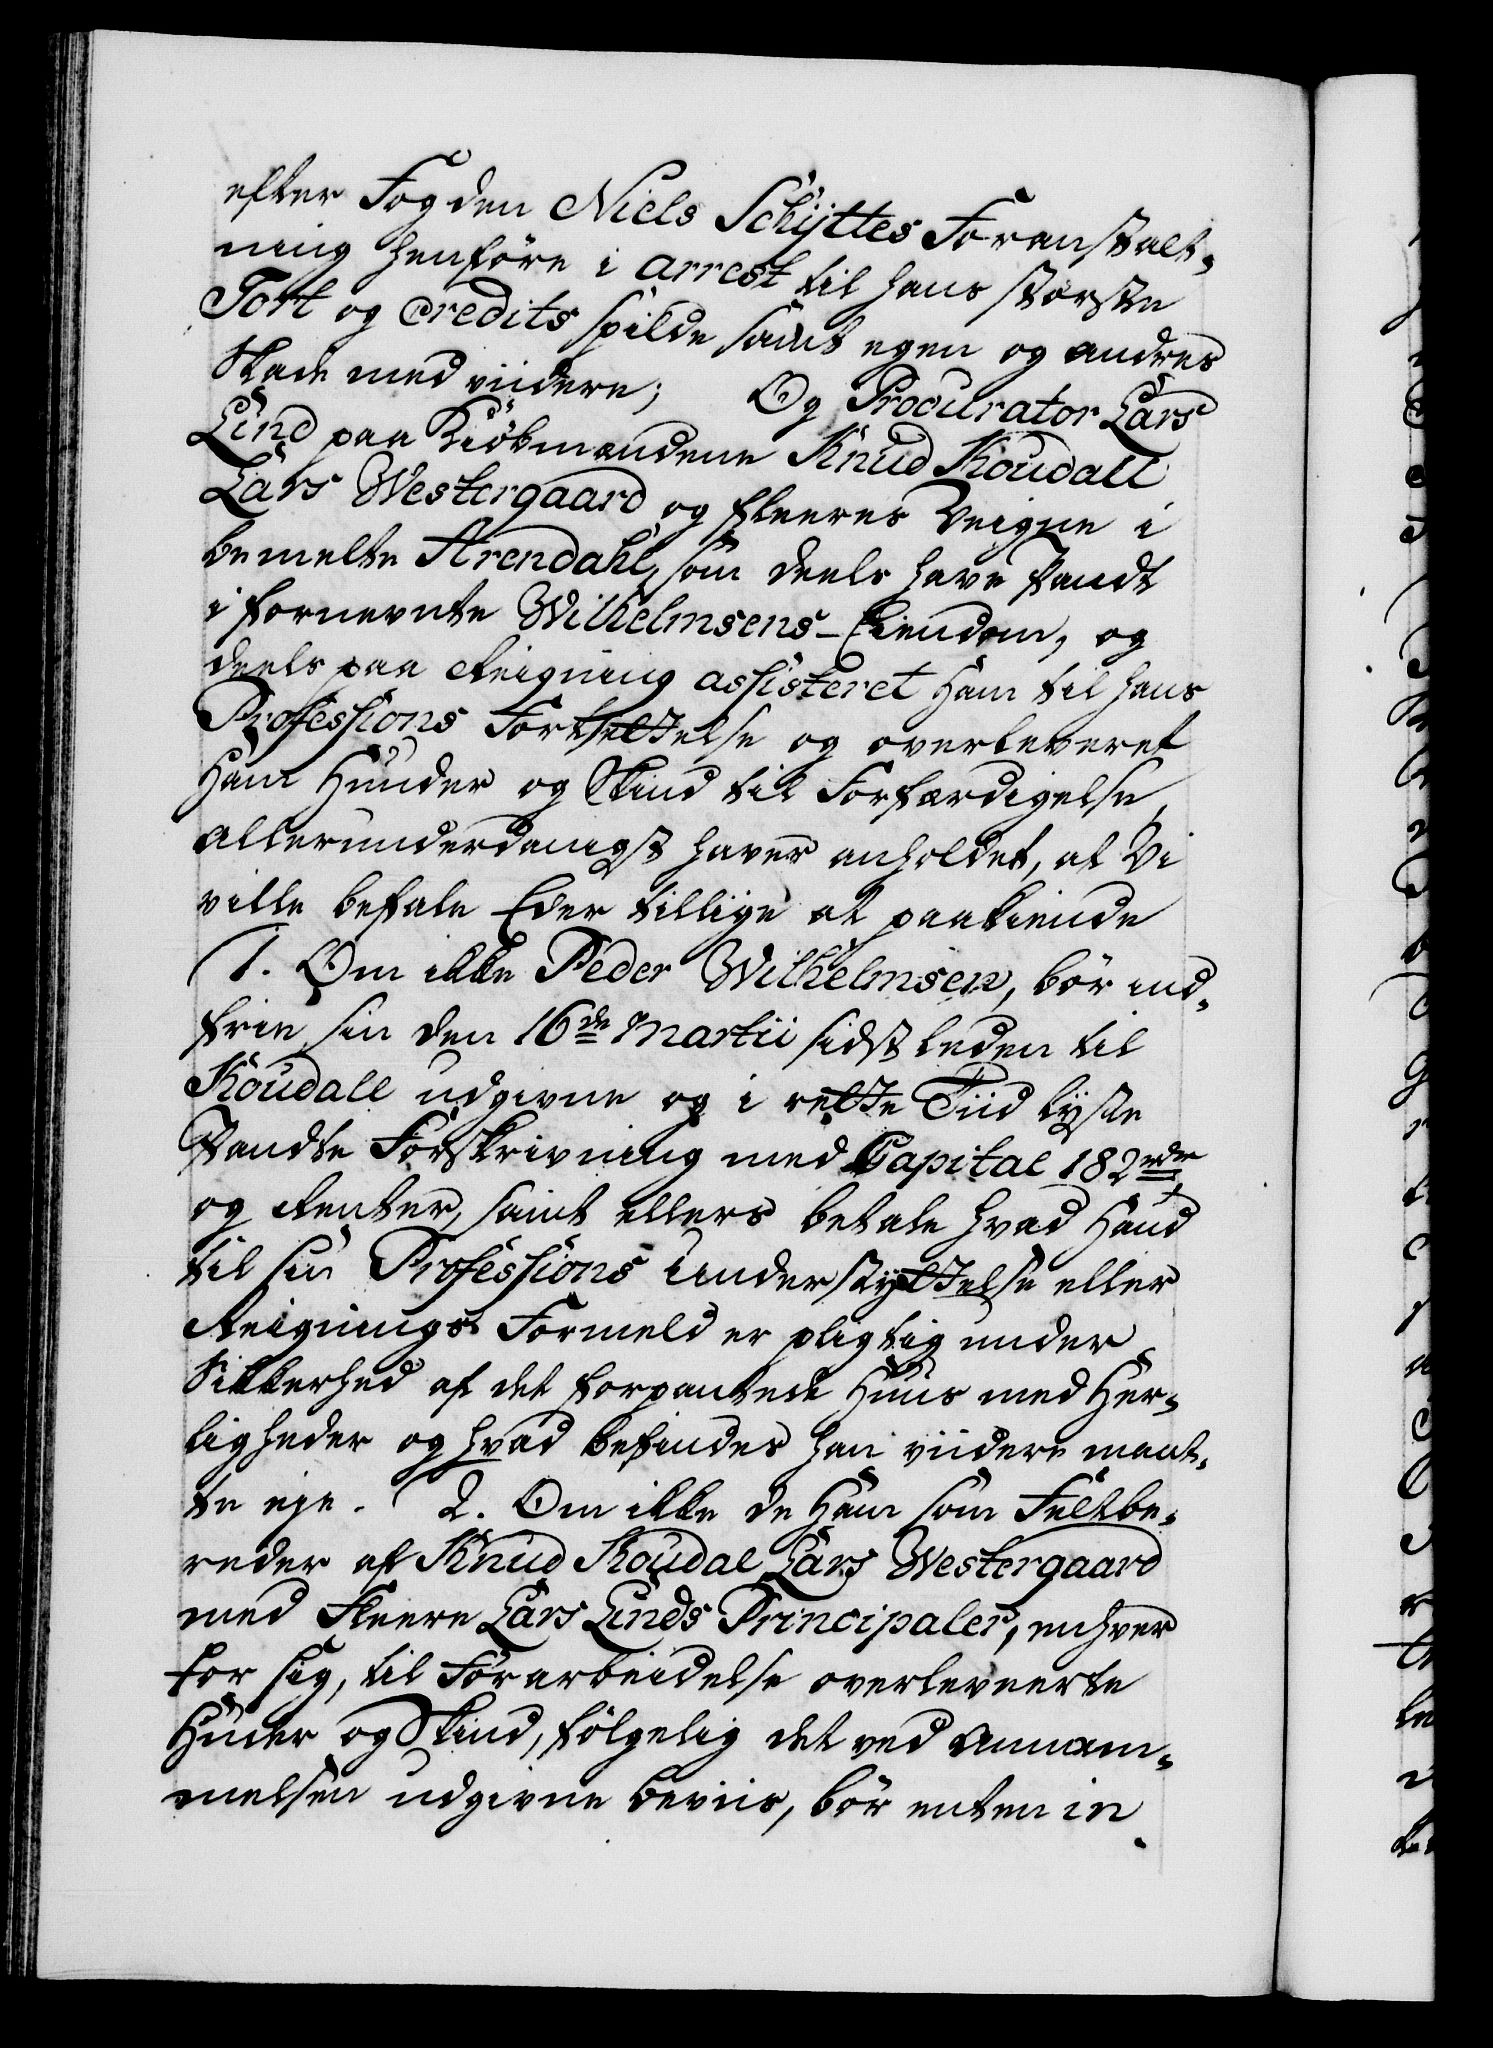 efter Fogden Niels Schÿttes Foranstalt-
ning henføre i arrest til hans störste
Tort og Credits spilde samt egen og andres
Skade med viidere; Og Procurator Lars
Lind paa Kiöbmændene Knud Koudall
Lars Westergaard og fleeres Veigne i
bemelte Arendahl, som deels have Pandt
i fornevnte Wilhelmsens Eiendom, og
deels paa Reigning assisteret Ham til hans
Professions Fortsettelse og overleveret
Ham Huuder og Skind til Forfærdigelse
allerunderdanigst haver anholdet, at Vi
ville befale Eder tillige at paakiende
1. Om ikke Peder Wilhelmsen, bör ind-
frie sin den 16de Martii sidstleden til
Koudall udgivne og i rette Tiid lyste
Pandte Forskrivning med Capital 182 rdr
og Renter, samt ellers betale hvad Hand
til sin Professions Understyttelse eller
Reignings Formeld er pligtig under
Sikkerhed af det forpantede Huus med Her-
ligheder og hvad befindes han viidere maat-
te eje. 2. Om ikke de Ham som Feltbe-
reder af Knud Koudal Lars Westergaard
med Fleere Lars Linds Principaler, enhver
for sig, til Forarbeidelse overleveerte
Huder og Skind, fölgelig det ved Annam-
melsen udgivne beviis, bör enten in